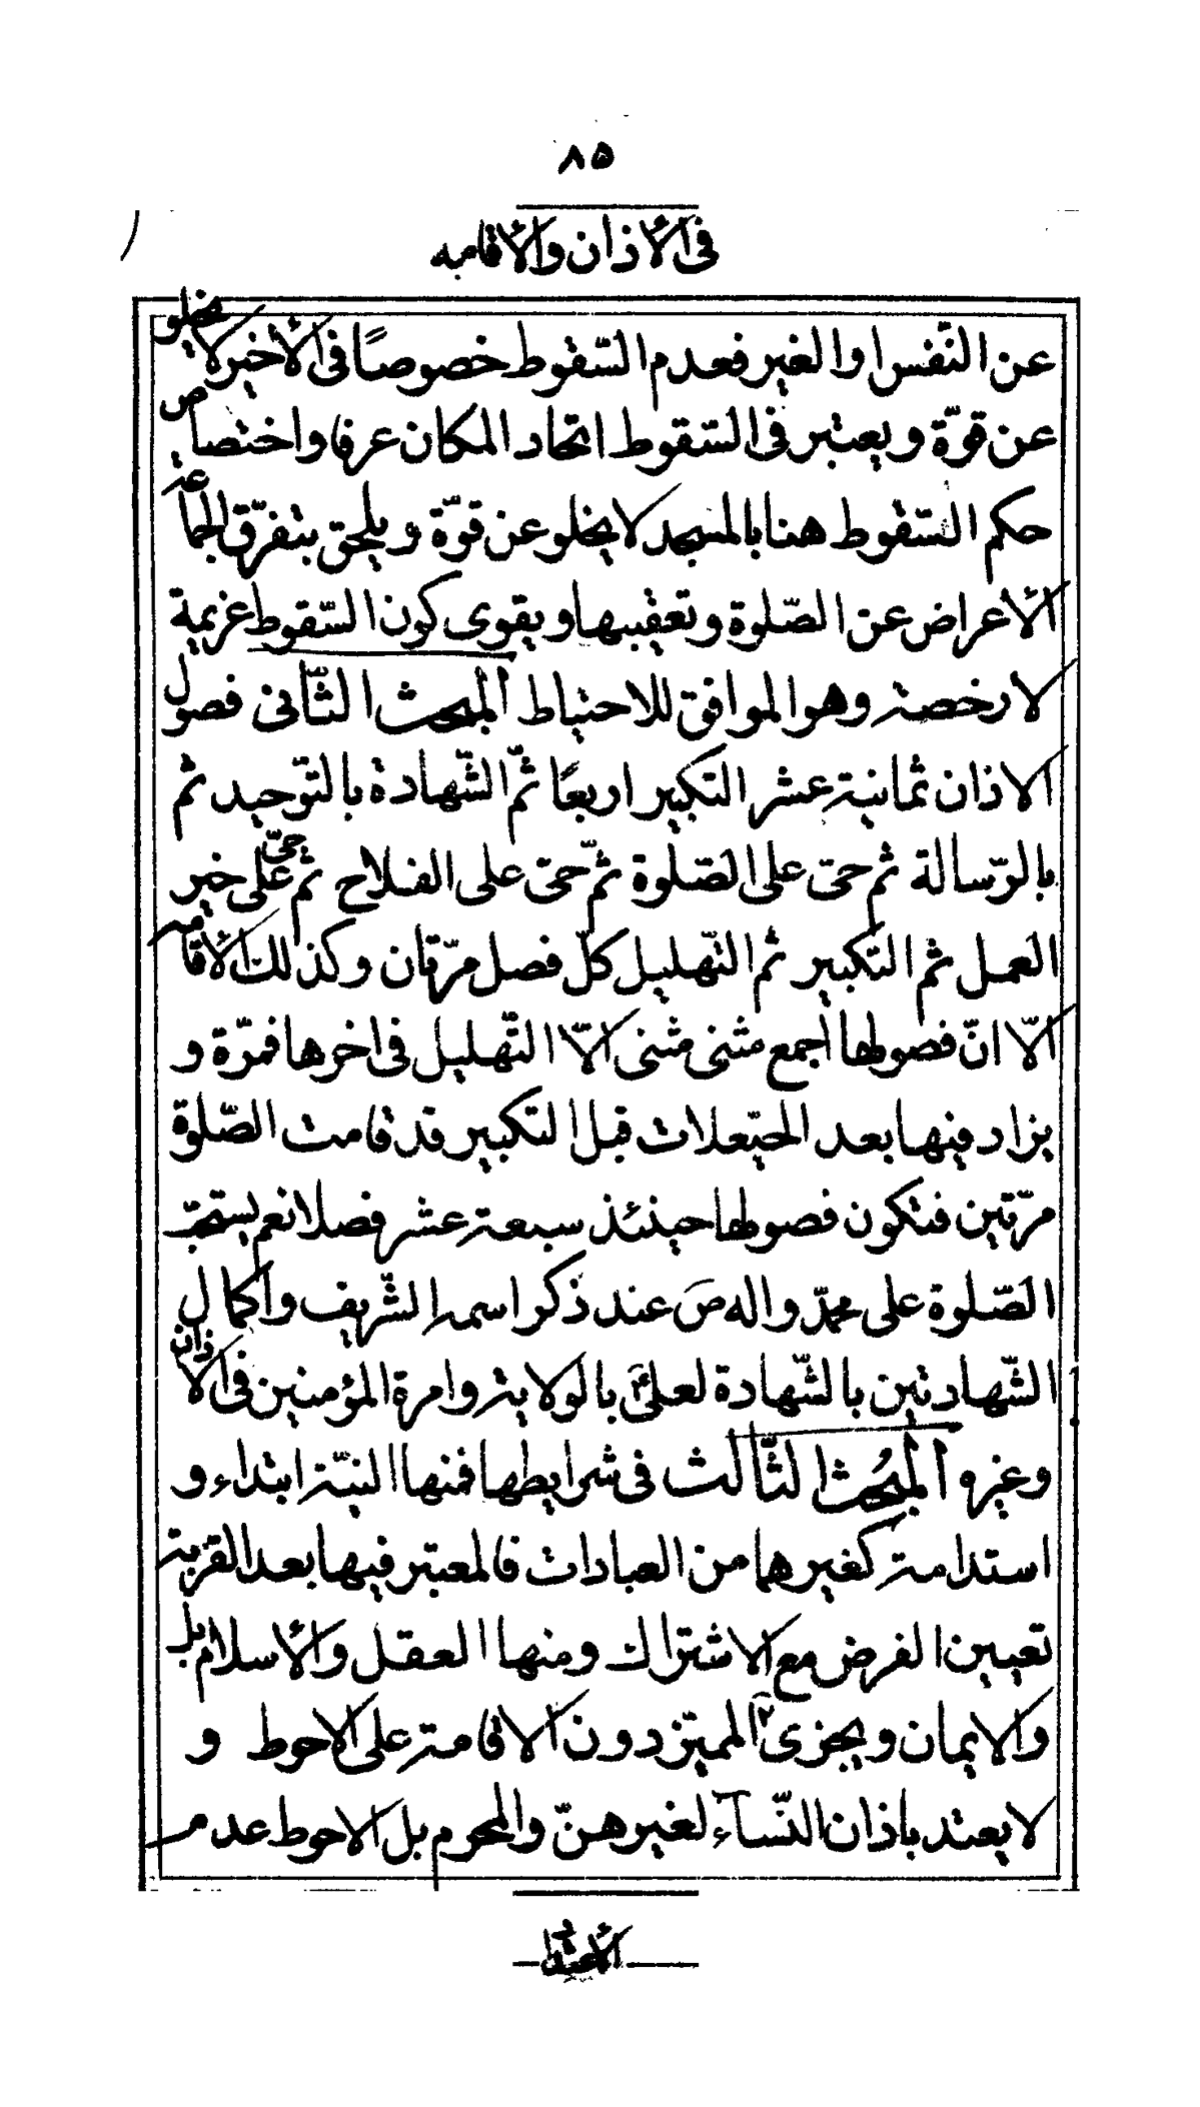 ٨۵
فى الأذان والأقامه
عن النّفس او الغير فعدم السّقوط خصوصًا فى الأخير لا يخلو
عن قوّة ويعتبر فى السّقوط اتحاد المكان عرفا واختصاص
حكم السّقوط هنا بالمسجد لا يخلو عن قوّة ويلحق بتفرّق الجماعة
الأعراض عن الصّلوة وتعقيبها ويقوى كون السّقوط عزيمة
لا رخصة وهو الموافق للاحتياط المبحث الثّانى فصول
الاذان ثمانية عشر التكبير اربعًا ثمّ الشّهادة بالتوّحيد ثم
بالرّسالة ثم حىّ على الصّلوة ثمّ حىّ على الفلاح ثم حىّ على خير
العمل ثم التكبير ثم التّهليل كلّ فصل مرّتان وكذلك الأقامة
الّا انّ فصولها اجمع مثنى مثنى الّا التّهليل فى اخرها فمرّة و
يزاد فيها بعد الحيّعلات قبل التكبير قد قامت الصّلوة
مرّتين فتكون فصولها حينئذ سبعة عشر فصلا نعم يستحبّ
الصّلوة على محمّد واله ص عند ذكر اسمه الشّريف واكمال
الشّهادتين بالشّهادة لعلىّ ع بالولاية وامرة المؤمنين فى الاذان
وغيره المبحث الثّالث فى شرايطها فمنها النيّة ابتداء و
استدامة كغيرهما من العبادات فالمعتبر فيها بعد القربة
تعيين الفرض مع الاشتراك ومنها العقل والأسلام بل
والايمان ويجزى المميّز دون الاقامة على الاحوط و
لا يعتد باذان النّسآء لغيرهنّ والمحرم بل الاحوط عدم
الأعتداد